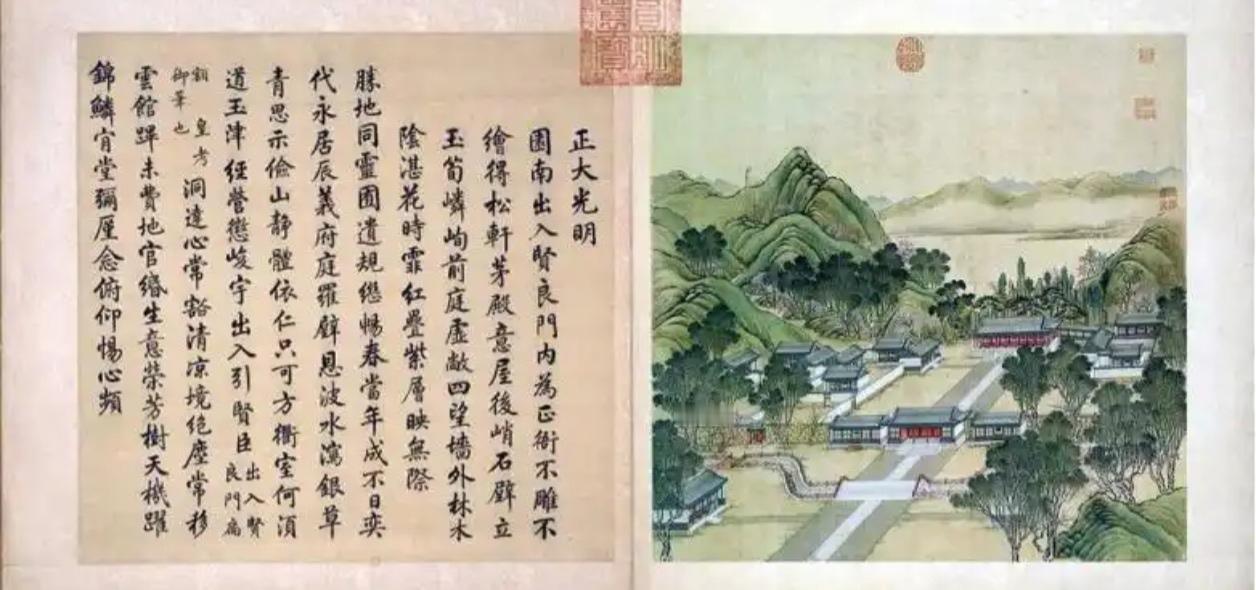 正大光明
園南出入賢良門内為正衙不雕不
繪得松軒茅殿意屋後峭石壁立
玉筍嶙峋前庭虛敞四望墻外林木
陰湛花時霏紅疊紫層映無際
勝地同靈囿遺規繼暢春當年成不日奕
代永居辰義府庭羅壁恩波水瀉銀草
青思示儉山静體依仁只可方衢室何須
道玉津經營懲峻宇出入引賢臣出入賢良門扁
額皇考御筆也洞達心常豁清凉境絶塵常移
雲館蹕未費地官緡生意榮芳樹天機躍
錦鱗肎堂彌厪念俯仰惕心頻